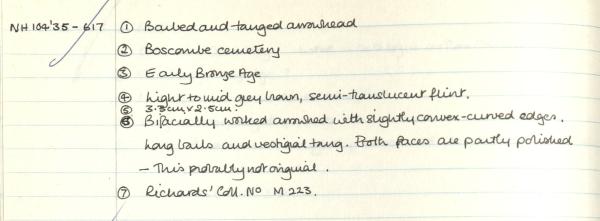 NH104'35-617 ① Barbed and tanged arrowhead
② Boscombe cemetery
③ Early Bronze Age
④ Light to mid grey brown, semi-translucent flint.
⑤ 3.3cm x 2.5cm.
⑥ Bifacially worked arrowhead with slightly convex-curved edges.
Long barbs and vestigial tang. Both faces are partly polished
- This probably not original.
⑦ Richards' Coll. No M 223.